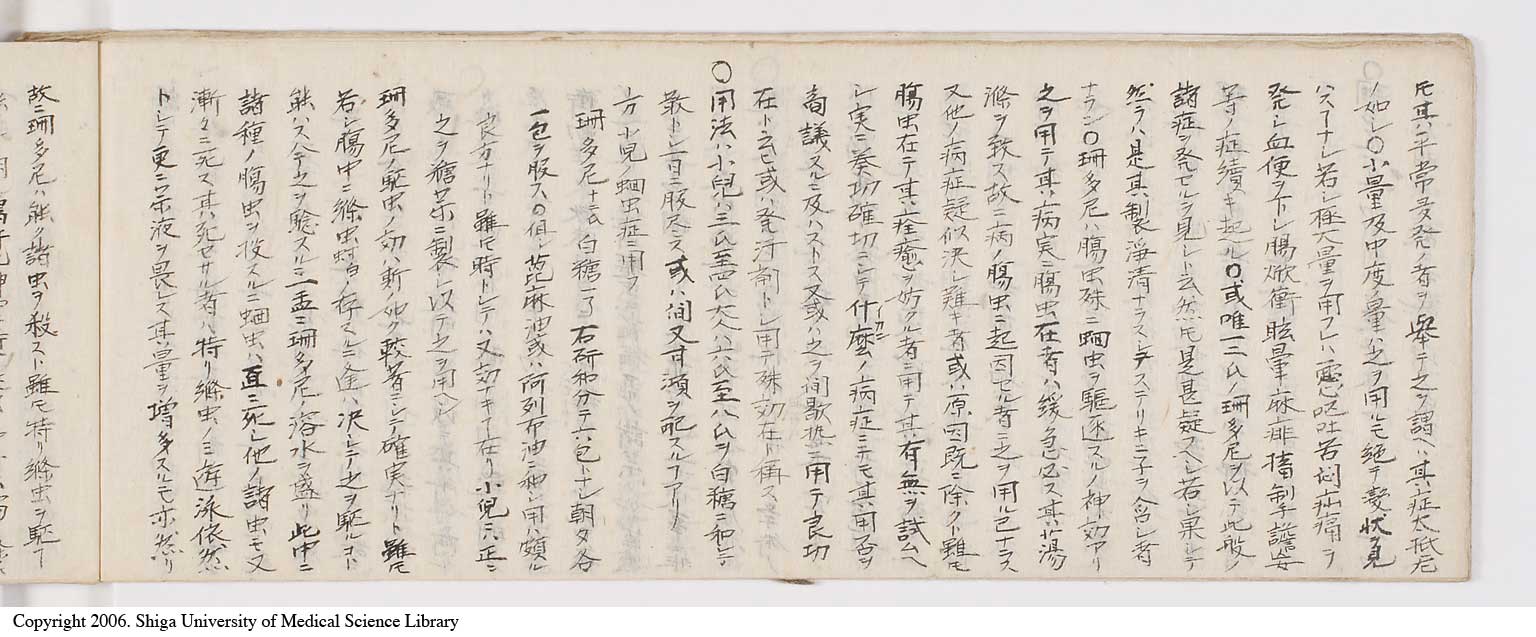 氏其平常多発ノ者ヲ舉テ之ヲ謂ヘハ其症太抵左
ノ如シ〇小量及中度量ハ之ヲ用ルモ絶テ変状ヲ見
ハスナシ若シ極大量ヲ用フレハ悪心嘔吐苦悶疝痛ヲ
発シ血便ヲ下シ腸焮衝眩暈麻痱搐掣譫妄
等ノ症續キ起ル〇或唯一二氏ノ珊多尼ヲ以テ此般ノ
諸症ヲ発セルヲ見シト云然モ是甚疑スヘシ若シ果シテ
然ラハ是其製淨清ナラスシテステリキニ子ヲ含シ者
ナラン〇珊多尼ハ腸虫殊ニ蛔虫ヲ駆逐スルノ神効アリ
之ヲ用テ其病実ニ腸虫在者ハ緩急必ス其蕩
滌ヲ致ス故ニ病ノ腸虫ニ起因セル者ニ之ヲ用ル已ナラス
又他ノ病症疑似決シ難キ者或ハ原因既ニ除クト雖モ
腸虫在テ其痊癒ヲ妨クル者ニ用テ其有無ヲ試ムヘ
シ実ニ奏功確切ニシテ什麼ノ病症ニテモ其用否ヲ
商議スルニ及ハストス又或ハ之ヲ間歇熱ニ用テ良功
在ト云ヒ或ハ発汗剤トシ用テ殊効在ト稱ス
〇用法ハ小兒ハ三氏至四氏大人ハ六氏至八氏ヲ白糖ニ和シテ
散トシ一日ニ服尽ス或ハ間又甘澒ヲ配スルアリ
方 小兒ノ蛔虫症ニ用フ
珊多尼十二氏 白糖一了 右研和分テ六包トナシ朝夕各
一包ヲ服ス〇但シ蓖麻油或ハ阿列布油ニ和シ用ハ頗ル
良方ナリト雖モ時トシテハ又効ナキ在リ小兒ニハ正ニ
之ヲ糖菓ニ製シ以テ之ヲ用ヘシ
珊多尼ノ駆虫ノ効ハ斯ノ如ク較著ニシテ確実ナリト雖モ
若シ腸中ニ絛虫ノ存スルニ逢ハ決シテ之ヲ駆ルコト
能ハス今之ヲ驗スルニ一盂ニ珊多尼ノ溶水ヲ盛リ此中ニ
諸種ノ腸虫ヲ投スルニ蛔虫ハ直ニ死シ他ノ諸虫モ又
漸々ニ死ス其死セサル者ハ特リ絛虫ノミ遊泳依然
トシテ更ニ薬液ヲ畏レス其量ヲ増多スルモ亦然リ
故ニ珊多尼ハ能ク諸虫ヲ殺スト雖モ特リ絛虫ヲ駆フ
Copyright 2006. Shiga University of Medical Science Library